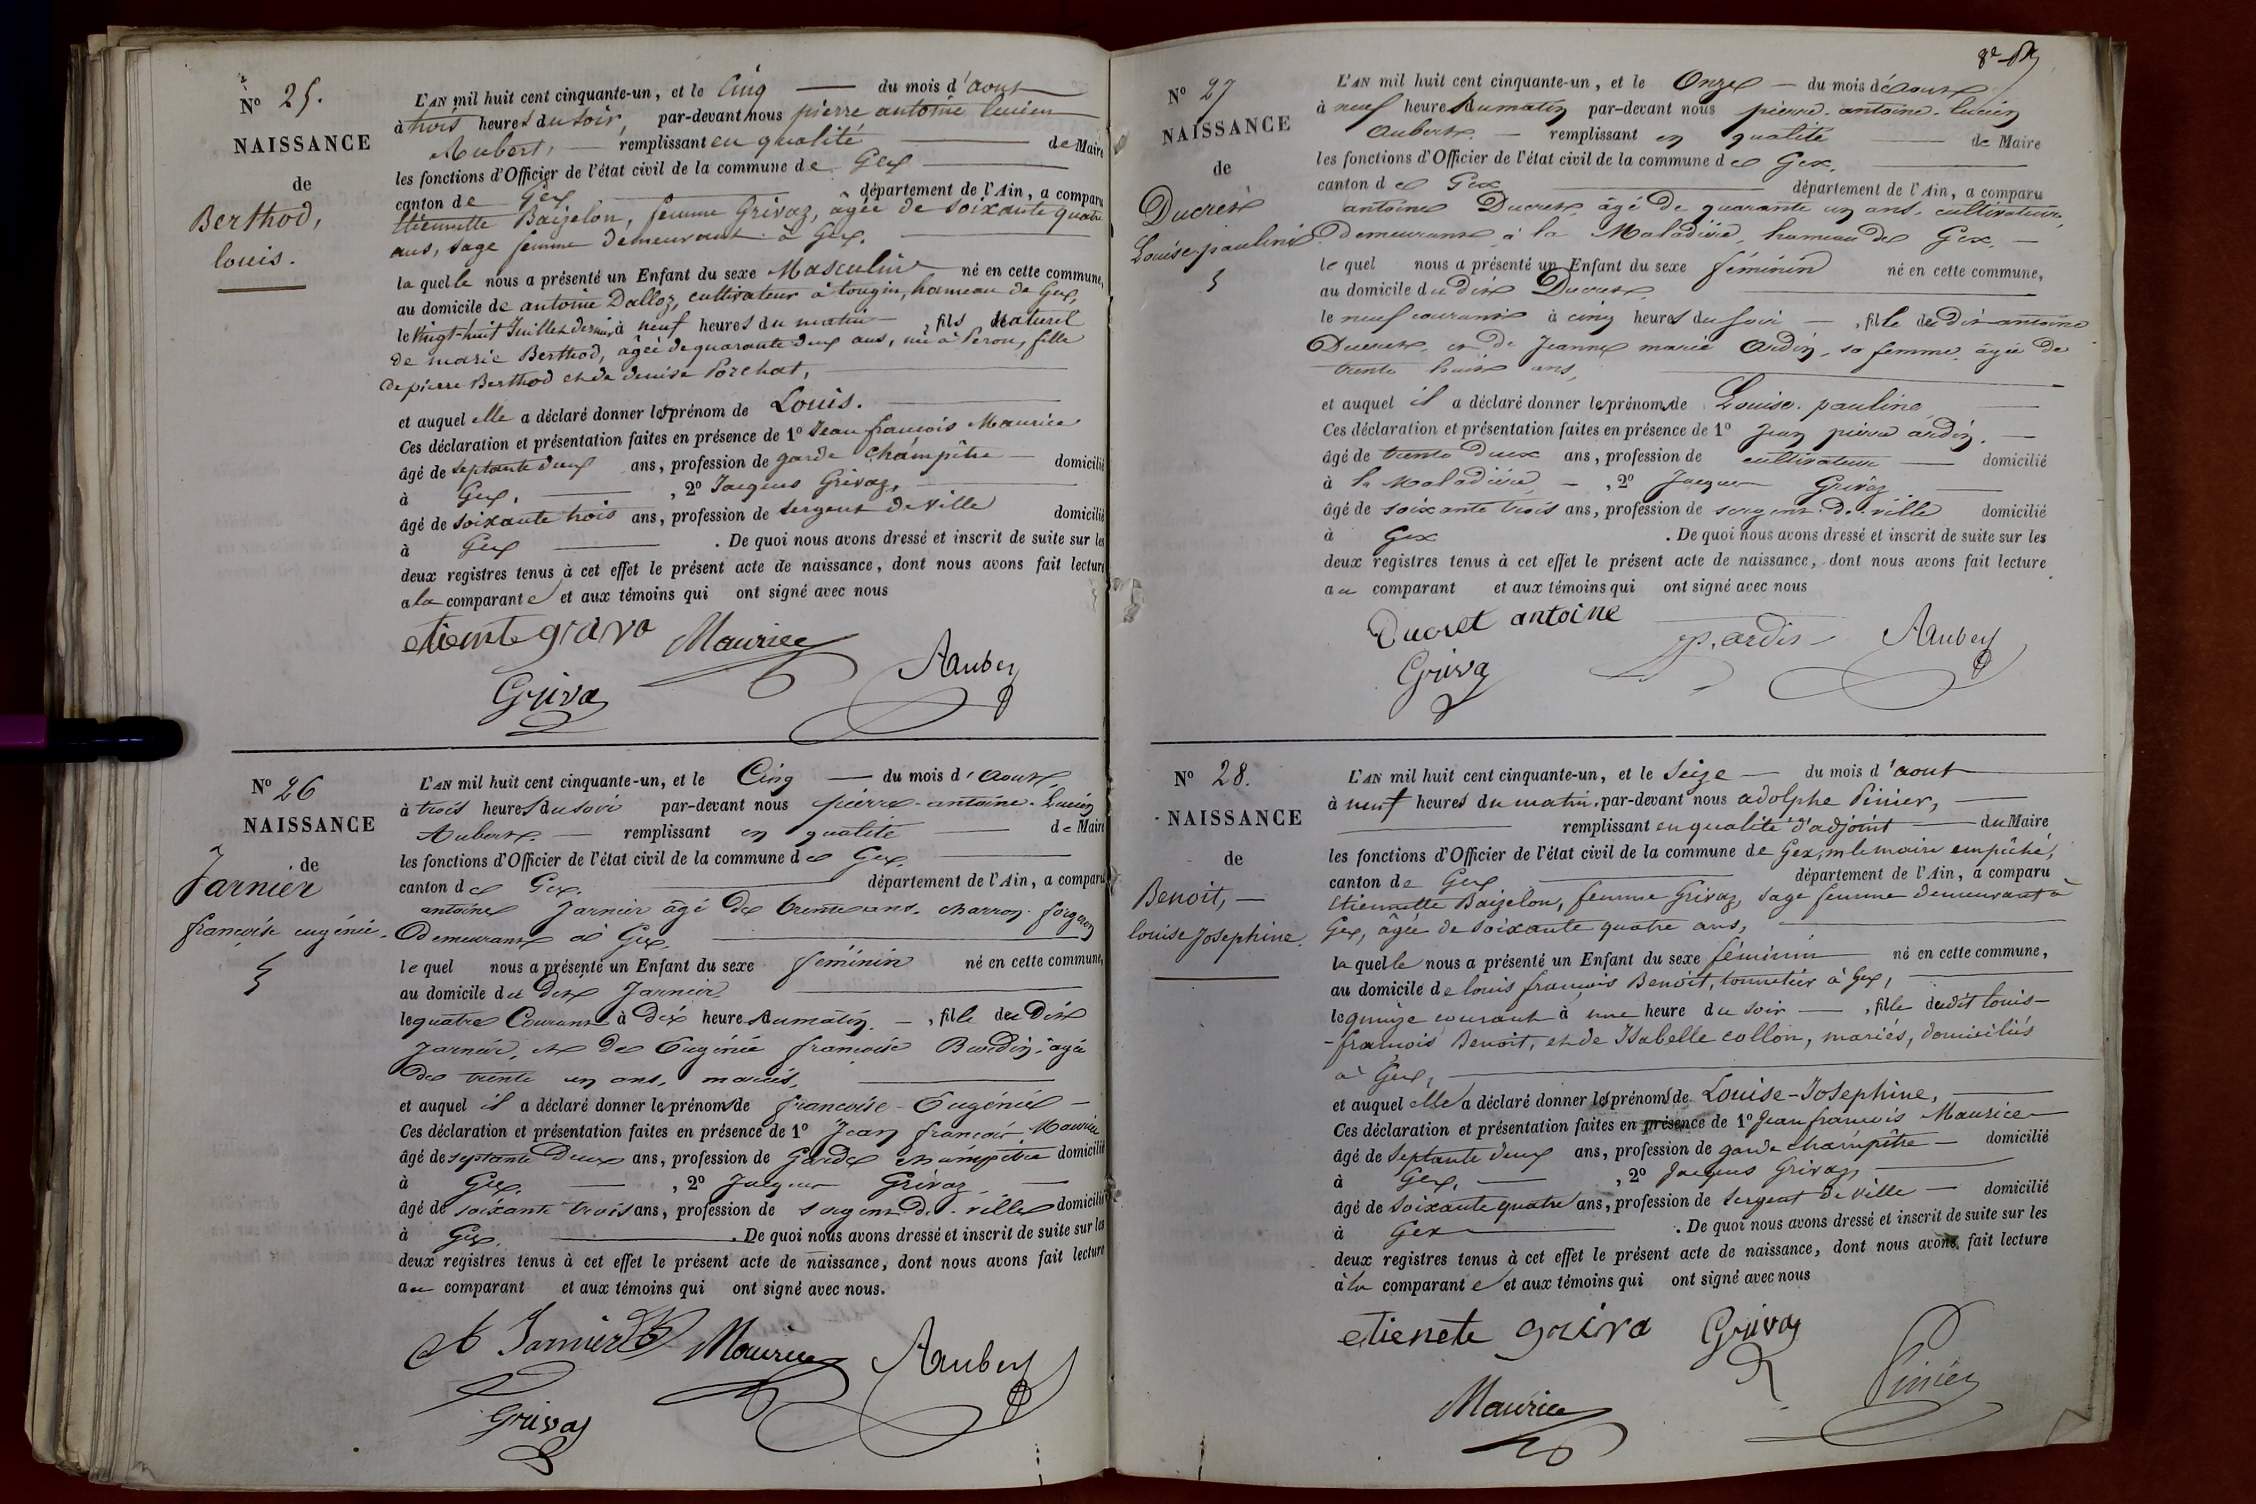 N° 25.
NAISSANCE
de
Berthod,
louis.
L'AN mil huit cent cinquante-un, et le Cinq du mois d'aout
à trois heures du soir, par-devant nous pierre antoine lucien
Aubert, remplissant en qualité de Maire
les fonctions d'Officier de l'état civil de la commune de Gex
canton de Gex département de l'Ain, a comparu
Etiennette Baizelon, femme Grivaz, âgée de soixante quatre
ans, sage femme demeurant à Gex.
laquelle nous a présenté un Enfant du sexe Masculin né en cette commune,
au domicile de antoine Dalloz, cultivateur à tougin, hameau de Gex,
le vingt-huit Juillet dernier, à neuf heures du matin, fils naturel
de marie Berthod, âgée de quarante deux ans, née à Peron, fille
de pierre Berthod et de denise Porchat,
et auquel elle a déclaré donner les prénom de Louis.
Ces déclaration et présentation faites en présence de 1° Jean françois Maurice
âgé de septante deux ans, profession de garde champêtre domicilié
à Gex, , 2° Jacques Grivaz,
âgé de soixante trois ans, profession de sergent de ville domicilié
à Gex . De quoi nous avons dressé et inscrit de suite sur les
deux registres tenus à cet effet le présent acte de naissance, dont nous avons fait lecture
a la comparante et aux témoins qui ont signé avec nous
etiennte griva Maurice
Aauber
Griva
N° 26
NAISSANCE
de
Jarnier
francoise eugénie.
L'AN mil huit cent cinquante-un, et le Cinq du mois d'aout
à trois heures du soir par-devant nous pierre-antoine-Lucien
Aubert. remplissant en qualité de Maire
les fonctions d'Officier de l'état civil de la commune de Gex.
canton de Gex. département de l'Ain, a comparu
antoine Jarnier âgé de trente ans. charron forgeron
demeurant à Gex.
lequel nous a présenté un Enfant du sexe féminin né en cette commune,
au domicile du dit Jarnier
le quatre Courant à dix heures du matin. , fille du Dit
Jarnier, et de Eugénie francoise Burdin, agée
de trente un ans, mariés,
et auquel il a déclaré donner les prénoms de francoise-Eugénie
Ces déclaration et présentation faites en présence de 1° Jean francois Maurice
âgé de septante Deux ans, profession de Garde champêtre domicilié
à Gex. , 2° Jacques Grivaz
âgé de soixante trois ans, profession de sergent de ville domicilié
à Gex. . De quoi nous avons dressé et inscrit de suite sur les
deux registres tenus à cet effet le présent acte de naissance, dont nous avons fait lecture
au comparant et aux témoins qui ont signé avec nous.
Jarnier Maurice Aauber
Grivaz
N° 27
NAISSANCE
de
Ducret
Louise-pauline
L'AN mil huit cent cinquante-un, et le Onze du mois d'aout
à neuf heures du matin par-devant nous pierre-antoine-lucien
aubert. remplissant en qualité de Maire
les fonctions d'Officier de l'état civil de la commune de Gex.
canton de Gex département de l'Ain, a comparu
antoine Ducret, âgé de quarante un ans, cultivateur,
demeurant à la Maladière, hameau de Gex.
lequel nous a présenté un Enfant du sexe féminin né en cette commune,
au domicile du dit Ducret.
le neuf courant à cinq heures du soir , fille du Dit antoine
Ducret, et de Jeanne marie Ardin, sa femme, âgée de
trente huit ans,
et auquel il a déclaré donner les prénoms de Louise. pauline
Ces déclaration et présentation faites en présence de 1° Jean pierre ardin.
âgé de trente deux ans, profession de cultivateur domicilié
à la Maladière , 2° Jacques Grivaz
âgé de soixante trois ans, profession de sergent de ville domicilié
à Gex . De quoi nous avons dressé et inscrit de suite sur les
deux registres tenus à cet effet le présent acte de naissance, dont nous avons fait lecture
au comparant et aux témoins qui ont signé avec nous
Ducret antoine
jp. ardin Aauber
Griva
N° 28.
NAISSANCE
de
Benoit,
louise Josephine.
L'AN mil huit cent cinquante-un, et le Seize du mois d'aout
à neuf heures du matin, par-devant nous adolphe Pinier,
remplissant en qualité d'adjoint du Maire
les fonctions d'Officier de l'état civil de la commune de Gex, m le maire empêché,
canton de Gex département de l'Ain, a comparu
Etiennette Baizelon, femme Grivaz, sage femme demeurant à
Gex, âgée de soixante quatre ans,
laquelle nous a présenté un Enfant du sexe féminin né en cette commune,
au domicile de louis françois Benoit, tonnelier à Gex,
le quinze courant à une heure du soir , fille dudit louis-
-françois Benoit, et de Isabelle collon, mariés, domiciliés
à Gex,
et auquel elle a déclaré donner les prénoms de Louise-Josephine,
Ces déclaration et présentation faites en présence de 1° Jean françois Maurice
âgé de septante deux ans, profession de garde champêtre domicilié
à Gex, , 2° Jacques Grivaz,
âgé de soixante quatre ans, profession de sergent de ville domicilié
à Gex . De quoi nous avons dressé et inscrit de suite sur les
deux registres tenus à cet effet le présent acte de naissance, dont nous avons fait lecture
à la comparante et aux témoins qui ont signé avec nous
etienete griva Grivaz
Pinier
Maurice